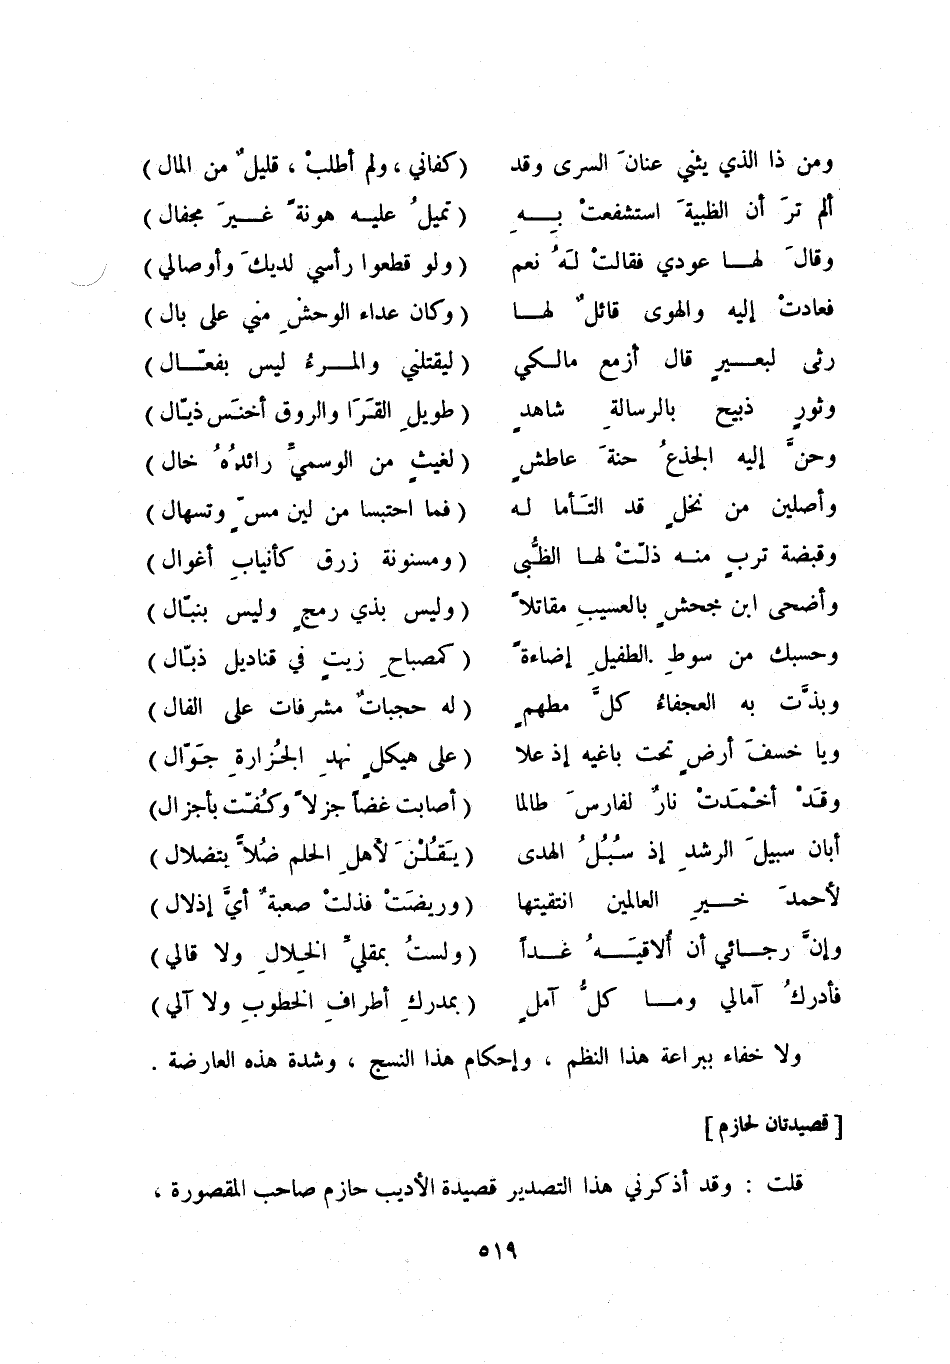 ومن ذا الذي يثني عنانَ السرى وقد (كفاني ، ولم أطلبْ ، قليلٌ من المال)
ألم ترَ أن الظبيةَ استشفعتْ بِهِ (تميلُ عليه هونةً غيرَ مجفال)
وقالَ لها عودي فقالتْ لهُ نعم (ولو قطعوا رأسي لديكَ وأوصالي)
فعادتْ إليه والهوى قائلٌ لها (وكان عداء الوحشِ مني على بال)
رثى لبعيرٍ قال أزمع مالكي (ليقتلني والمرءُ ليس بفعّال)
وثورٍ ذبيح بالرسالةِ شاهدٍ (طويلِ القَرَا والروق أخنَس ذيّال)
وحنَّ إليه الجذعُ حنةَ عاطشٍ (لغيثٍ من الوسميِّ رائدُهُ خال)
وأصلين من نخلٍ قد التَأما له (فما احتبسا من لين مسّ وتسهال)
وقبضة تربٍ منه ذلّتْ لها الظُّبى (ومسنونة زرق كأنيابِ أغوال)
وأضحى ابن جحشٍ بالعسيبِ مقاتلاً (وليس بذي رمحٍ وليس بنبّال)
وحسبك من سوطِ الطفيلِ إضاءةً (كمصباحِ زيتٍ في قناديل ذبّال)
وبذَّت به العجفاءُ كلَّ مطهمٍ (له حجباتٌ مشرفات على الفال)
ويا خسفَ أرضٍ تحت باغيه إذ علا (على هيكلٍ نهدِ الجُزارةِ جَوّال)
وقَدْ أخْمَدتْ نارٌ لفارسَ طالما (أصابت غضاً جزلاً وكُفّت بأجزال)
أبان سبيلَ الرشدِ إذ سُبُلُ الهدى (يَقُلْنَ لأهلِ الحلم ضُلاًّ بتضلال)
لأحمدَ خيرِ العالمين انتقيتها (وريضَتْ فذلتْ صعبةٌ أيَّ إذلال)
وإنَّ رجائي أن ألاقيَهُ غداً (ولستُ بمقليِّ الخلالِ ولا قالي)
فأدركُ آمالي وما كلُّ آملٍ (بمدركِ أطرافِ الخطوبِ ولا آلي)
ولا خفاء ببراعة هذا النظم ، وإحكام هذا النسج ، وشدة هذه العارضة .
[قصيدتان لحازم]
قلت : وقد أذكرني هذا التصدير قصيدة الأديب حازم صاحب المقصورة ،
٥١٩